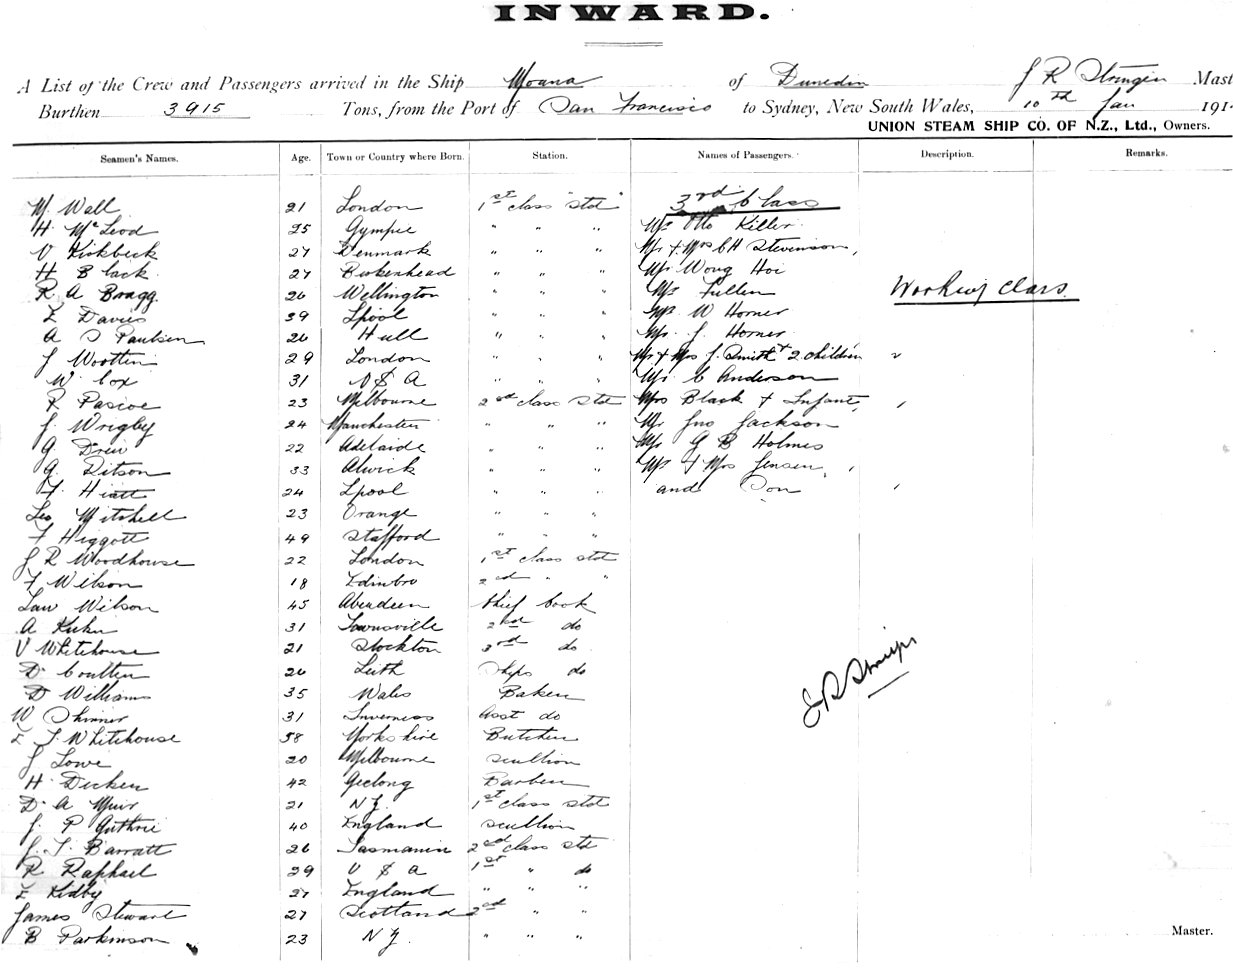 INWARD.
A List of the Crew and Passengers arrived in the Ship Moana of Dunedin J R Mast
Burthen 3915 Tons, from the Port of San Francisco to Sydney, New South Wales, 10th Jan 191
UNION STEAM SHIP CO. OF N.Z., Ltd., Owners.
Seamen's Names. Age. Town or Country where Born. Station. Names of Passengers. Description. Remarks.
M. Wall 21 London 1st class "Std" 3rd Class
H. McLeod 25 Gympie " " " Mr Otto Killer
V Kirkbeck 27 Denmark " " " Mr & Mrs C H Stevenson,
H Black 27 Birkenhead " " " Mr Wong Hoi
R. A Bragg. 26 Wellington " " " Mr Fullen Working Class.
E Davies 39 Lpool " " " Mr W Horner
A S Paulsen 26 Hull " " " Mr. J. Horner
J Wootten 29 London " " " Mr & Mrs J. Smith & 2 children
W. Cox 31 U S A " " " Mr C Anderson
R Pascoe 23 Melbourne 2nd class Std Mrs Black & Infant,
J. Wrigby 24 Manchester " " " Mr Jno Jackson
G Drew 22 Adelaide " " " Mr G B Holmes
G. Ditson 33 Alwick " " " Mr & Mrs Jensen,
F Hiatt 24 Lpool " " " and Son
Leo Mitchell 23 Orange " " "
F Higgott 49 Stafford " " "
J R Woodhouse 22 London 1st class std
F Wilson 18 Edinbro 2nd " "
Law Wilson 45 Aberdeen Chief Cook
A Kuhn 31 Townsville 2nd do
V Whitehouse 21 Stockton 3rd do.
D. Coulter 26 Leith Ships do
D Williams 35 Wales Baker
W Skinner 31 Inverness Asst do
E J. Whitehouse 58 Yorkshire Butcher
J Lowe 20 Melbourne Scullion
H. Dicker 42 Geelong Barber
D. A Muir 21 N Z. 1st class std
J. P Guthrie 40 England Scullion
J. T. Barratt 26 Tasmania 2nd class std
R Raphael 29 U S A 1st " do
E Kidby 27 England " " "
James Stewart 27 Scotland 2nd " "
B Parkinson 23 N Z. " " "
Master.